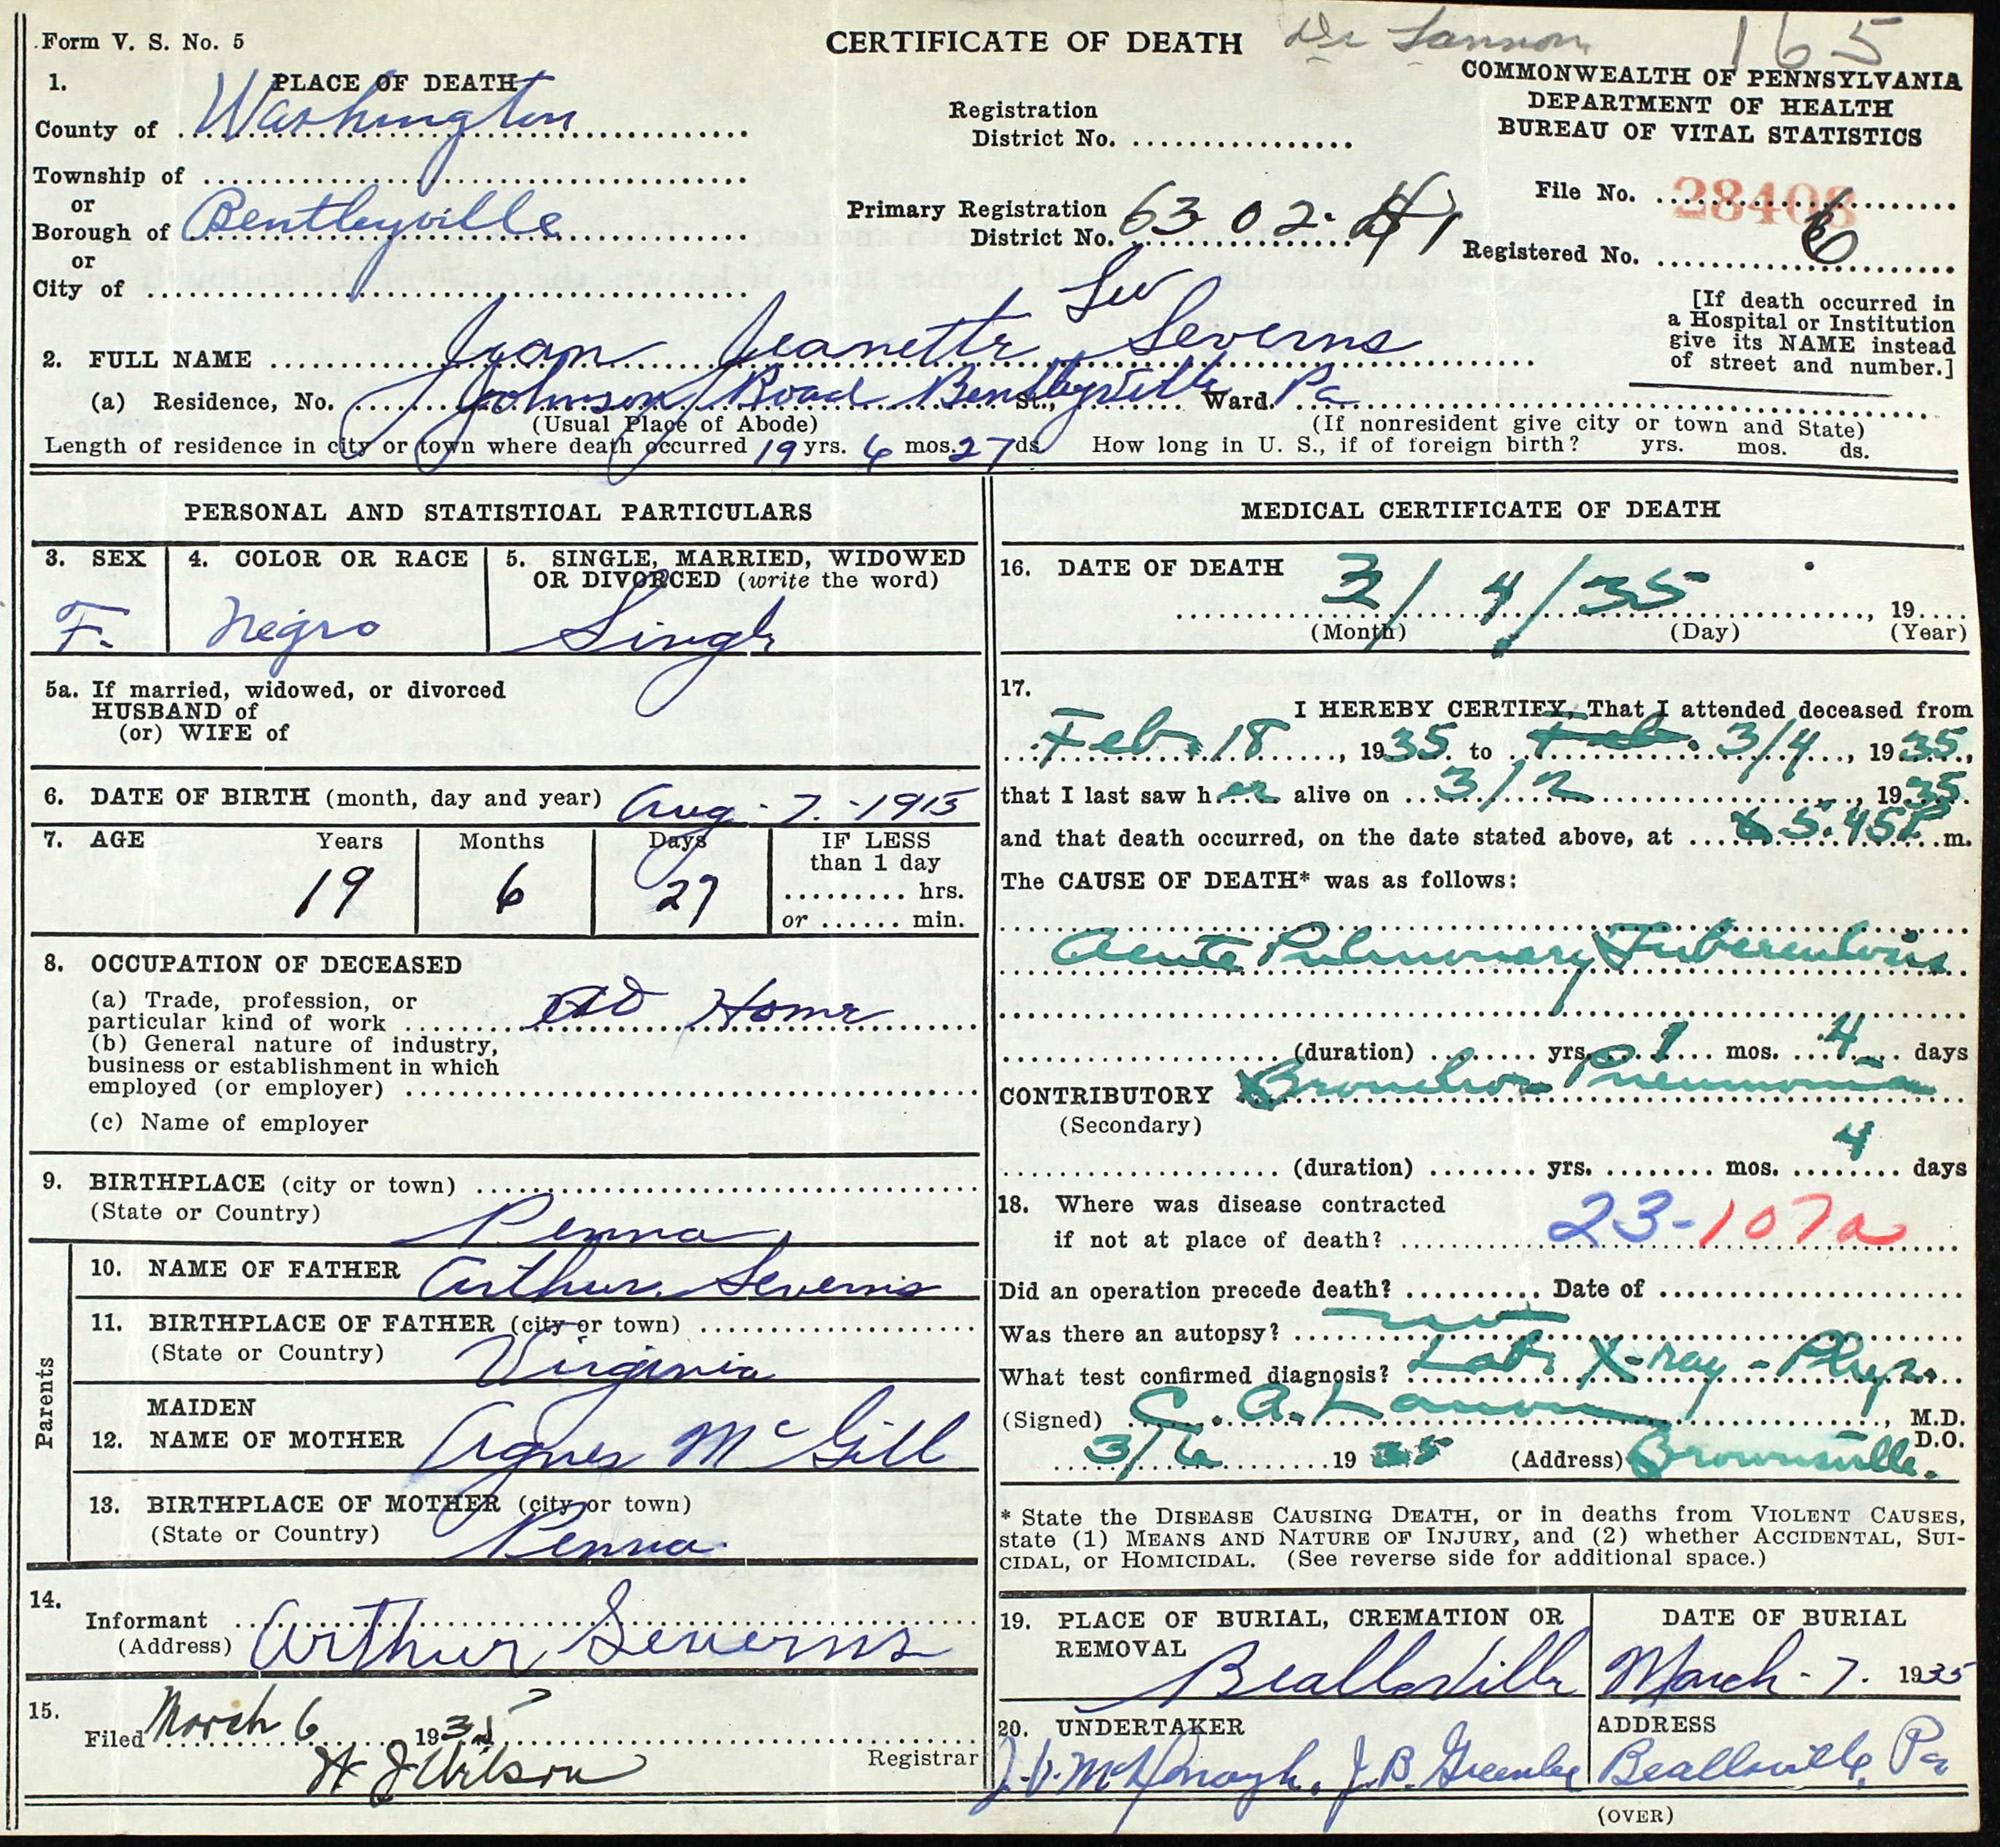 Form V. S. No. 5
CERTIFICATE OF DEATH
165
COMMONWEALTH OF PENNSYLVANIA
DEPARTMENT OF HEALTH
BUREAU OF VITAL STATISTICS
1. PLACE OF DEATH
County of Washington
Township of
or
Borough of Bentleyville
or
City of
Registration
District No.
Primary Registration
District No. 63-02-41
File No. 28408
Registered No. 6
[If death occurred in
a Hospital or Institution
give its NAME instead
of street and number.]
2. FULL NAME Jean Jeanette Severns
(a) Residence, No. Johnson Road Bentleyville St., Ward. Pa
(Usual Place of Abode) (If nonresident give city or town and State)
Length of residence in city or town where death occurred 19 yrs. 6 mos. 27 ds. How long in U. S., if of foreign birth? yrs. mos. ds.
PERSONAL AND STATISTICAL PARTICULARS
3. SEX
F.
4. COLOR OR RACE
Negro
5. SINGLE, MARRIED, WIDOWED
OR DIVORCED (write the word)
Single
5a. If married, widowed, or divorced
HUSBAND of
(or) WIFE of
6. DATE OF BIRTH (month, day and year) Aug. 7. 1915
7. AGE Years Months Days IF LESS
than 1 day
19 6 27 hrs.
or min.
8. OCCUPATION OF DECEASED
(a) Trade, profession, or
particular kind of work At Home
(b) General nature of industry,
business or establishment in which
employed (or employer)
(c) Name of employer
9. BIRTHPLACE (city or town)
(State or Country) Penna
Parents
10. NAME OF FATHER Arthur Severns
11. BIRTHPLACE OF FATHER (city or town)
(State or Country) Virginia
MAIDEN
12. NAME OF MOTHER Agnes McGill
13. BIRTHPLACE OF MOTHER (city or town)
(State or Country) Penna.
14.
Informant Arthur Severns
(Address)
15.
Filed March 6 1935
H J Wilson
Registrar
MEDICAL CERTIFICATE OF DEATH
16. DATE OF DEATH 3/4/35, 19
(Month) (Day) (Year)
17.
I HEREBY CERTIFY, That I attended deceased from
Feb. 18, 1935 to Feb. 3/4, 1935,
that I last saw her alive on 3/2, 1935.
and that death occurred, on the date stated above, at 5.45P. m.
The CAUSE OF DEATH* was as follows:
Acute Pulmonary Tuberculosis
(duration) yrs. 1 mos. 4 days
CONTRIBUTORY Broncho Pneumonia
(Secondary)
4
(duration) yrs. mos. days
18. Where was disease contracted
if not at place of death? 23-107a
Did an operation precede death? Date of
Was there an autopsy? no
What test confirmed diagnosis? Lab. X-ray - Phys.
(Signed) C. A. Lannon, M.D.
D.O.
3/6 1935 (Address) Brownsville.
* State the DISEASE CAUSING DEATH, or in deaths from VIOLENT CAUSES,
state (1) MEANS AND NATURE OF INJURY, and (2) whether ACCIDENTAL, SUI-
CIDAL, or HOMICIDAL. (See reverse side for additional space.)
19. PLACE OF BURIAL, CREMATION OR
REMOVAL
Beallsville
DATE OF BURIAL
March - 7. 1935
20. UNDERTAKER
J. B. Greenlee
ADDRESS
Beallsville, Pa
(OVER)